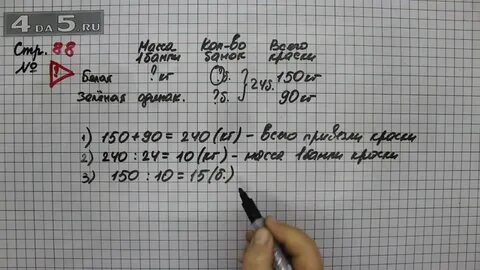 4 DA 5.RU
Стр. 88 Масса 1 банки Кол-во банок Всего краски
№ ?
Белая ? кг ? б. } 24 б. 150 кг
Зелёная одинак. ? б. 90 кг
1) 150 + 90 = 240 (кг) - всего привезли краски
2) 240 : 24 = 10 (кг) - масса 1 банки краски
3) 150 : 10 = 15 (б.)